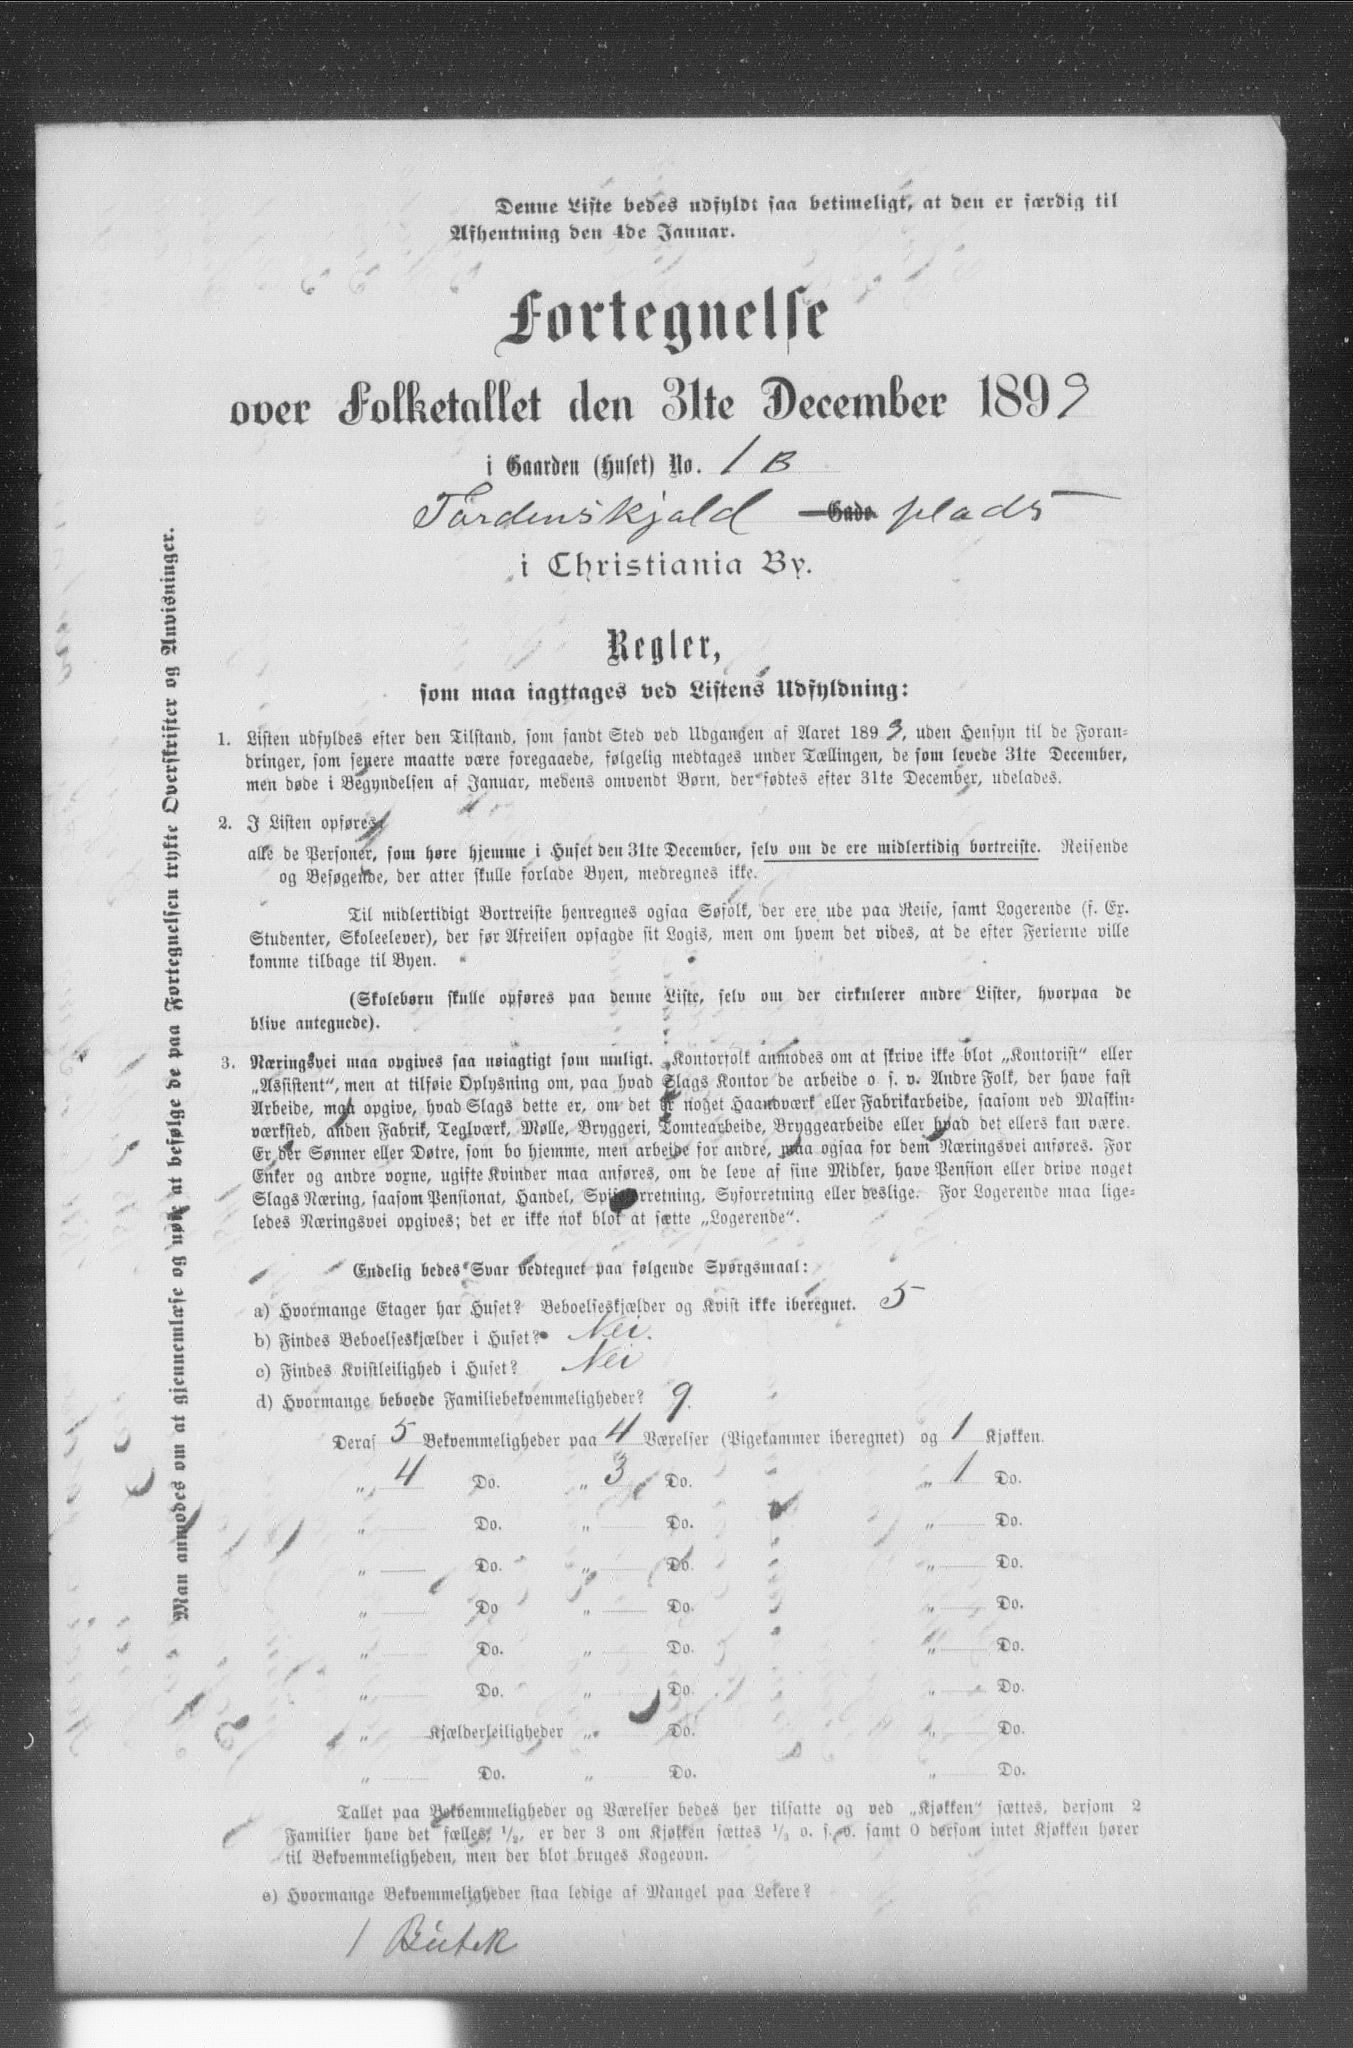 Denne Liste bedes udfyldt saa betimeligt, at den er færdig til
Afhentning den 4de Januar.
Fortegnelse
over Folketallet den 31te December 1899
i Gaarden (Huset) No. 1 B
Tordenskjold Gade plads
i Christiania By.
Regler,
som maa iagttages ved Listens Udfyldning:
1. Listen udfyldes efter den Tilstand, som fandt Sted ved Udgangen af Aaret 1899, uden Hensyn til de Foran-
dringer, som senere maatte være foregaaede, følgelig medtages under Tællingen, de som levede 31te December,
men døde i Begyndelsen af Januar, medens omvendt Børn, der fødtes efter 31te December, udelades.
2. I Listen opføres
alle de Personer, som høre hjemme i Huset den 31te December, selv om de ere midlertidig bortreiste. Reisende
og Besøgende, der atter skulle forlade Byen, medregnes ikke.
Til midlertidigt Bortreiste henregnes ogsaa Søfolk, der ere ude paa Reise, samt Logerende (f. Ex.
Studenter, Skoleelever), der før Afreisen opsagde sit Logis, men om hvem det vides, at de efter Ferierne ville
komme tilbage til Byen.
(Skolebørn skulle opføres paa denne Liste, selv om der cirkulerer andre Lister, hvorpaa de
blive antegnede).
3. Næringsvei maa opgives saa nøiagtigt som muligt. Kontorfolk anmodes om at skrive ikke blot „Kontorist“ eller
„Assistent“, men at tilføie Oplysning om, paa hvad Slags Kontor de arbeide o. s. v. Andre Folk, der have fast
Arbeide, maa opgive, hvad Slags dette er, om det er noget Haandværk eller Fabrikarbeide, saasom ved Maskin-
værksted, anden Fabrik, Teglværk, Mølle, Bryggeri, Tomtearbeide, Bryggearbeide eller hvad det ellers kan være.
Er der Sønner eller Døtre, som bo hjemme, men arbeide for andre, maa ogsaa for dem Næringsvei anføres. For
Enker og andre voxne, ugifte Kvinder maa anføres, om de leve af sine Midler, have Pension eller drive noget
Slags Næring, saasom Pensionat, Handel, Spiseforretning, Syforretning eller deslige. For Logerende maa lige-
ledes Næringsvei opgives; det er ikke nok blot at sætte „Logerende“.
Endelig bedes Svar vedtegnet paa følgende Spørgsmaal:
a) Hvormange Etager har Huset? Beboelseskjælder og Kvist ikke iberegnet. 5
b) Findes Beboelseskjælder i Huset? Nei.
c) Findes Kvistleilighed i Huset? Nei
d) Hvormange beboede Familiebekvemmeligheder? 9.
Deraf 5 Bekvemmeligheder paa 4 Værelser (Pigekammer iberegnet) og 1 Kjøkken.
„ 4 Do. „ 3 Do. „ 1 Do.
„ Do. „ Do. „ Do.
„ Do. „ Do. „ Do.
„ Do „ Do. „ Do.
„ Do. „ Do. „ Do.
„ Do. „ Do. „ Do.
„ Kjælderleiligheder „ Do. „ Do.
„ Do. „ Do. „ Do.
Tallet paa Bekvemmeligheder og Værelser bedes her tilsatte og ved „Kjøkken“ sættes, dersom 2
Familier have det fælles, 1/2, er der 3 om Kjøkken sættes 1/3 o. s. v. samt 0 dersom intet Kjøkken hører
til Bekvemmeligheden, men der blot bruges Kogeovn.
e) Hvormange Bekvemmeligheder staa ledige af Mangel paa Leiere?
1 Butik
Man anmodes om at gjennemlæse og nøie at befølge de paa Fortegnelsen trykte Overskrifter og Anvisninger.